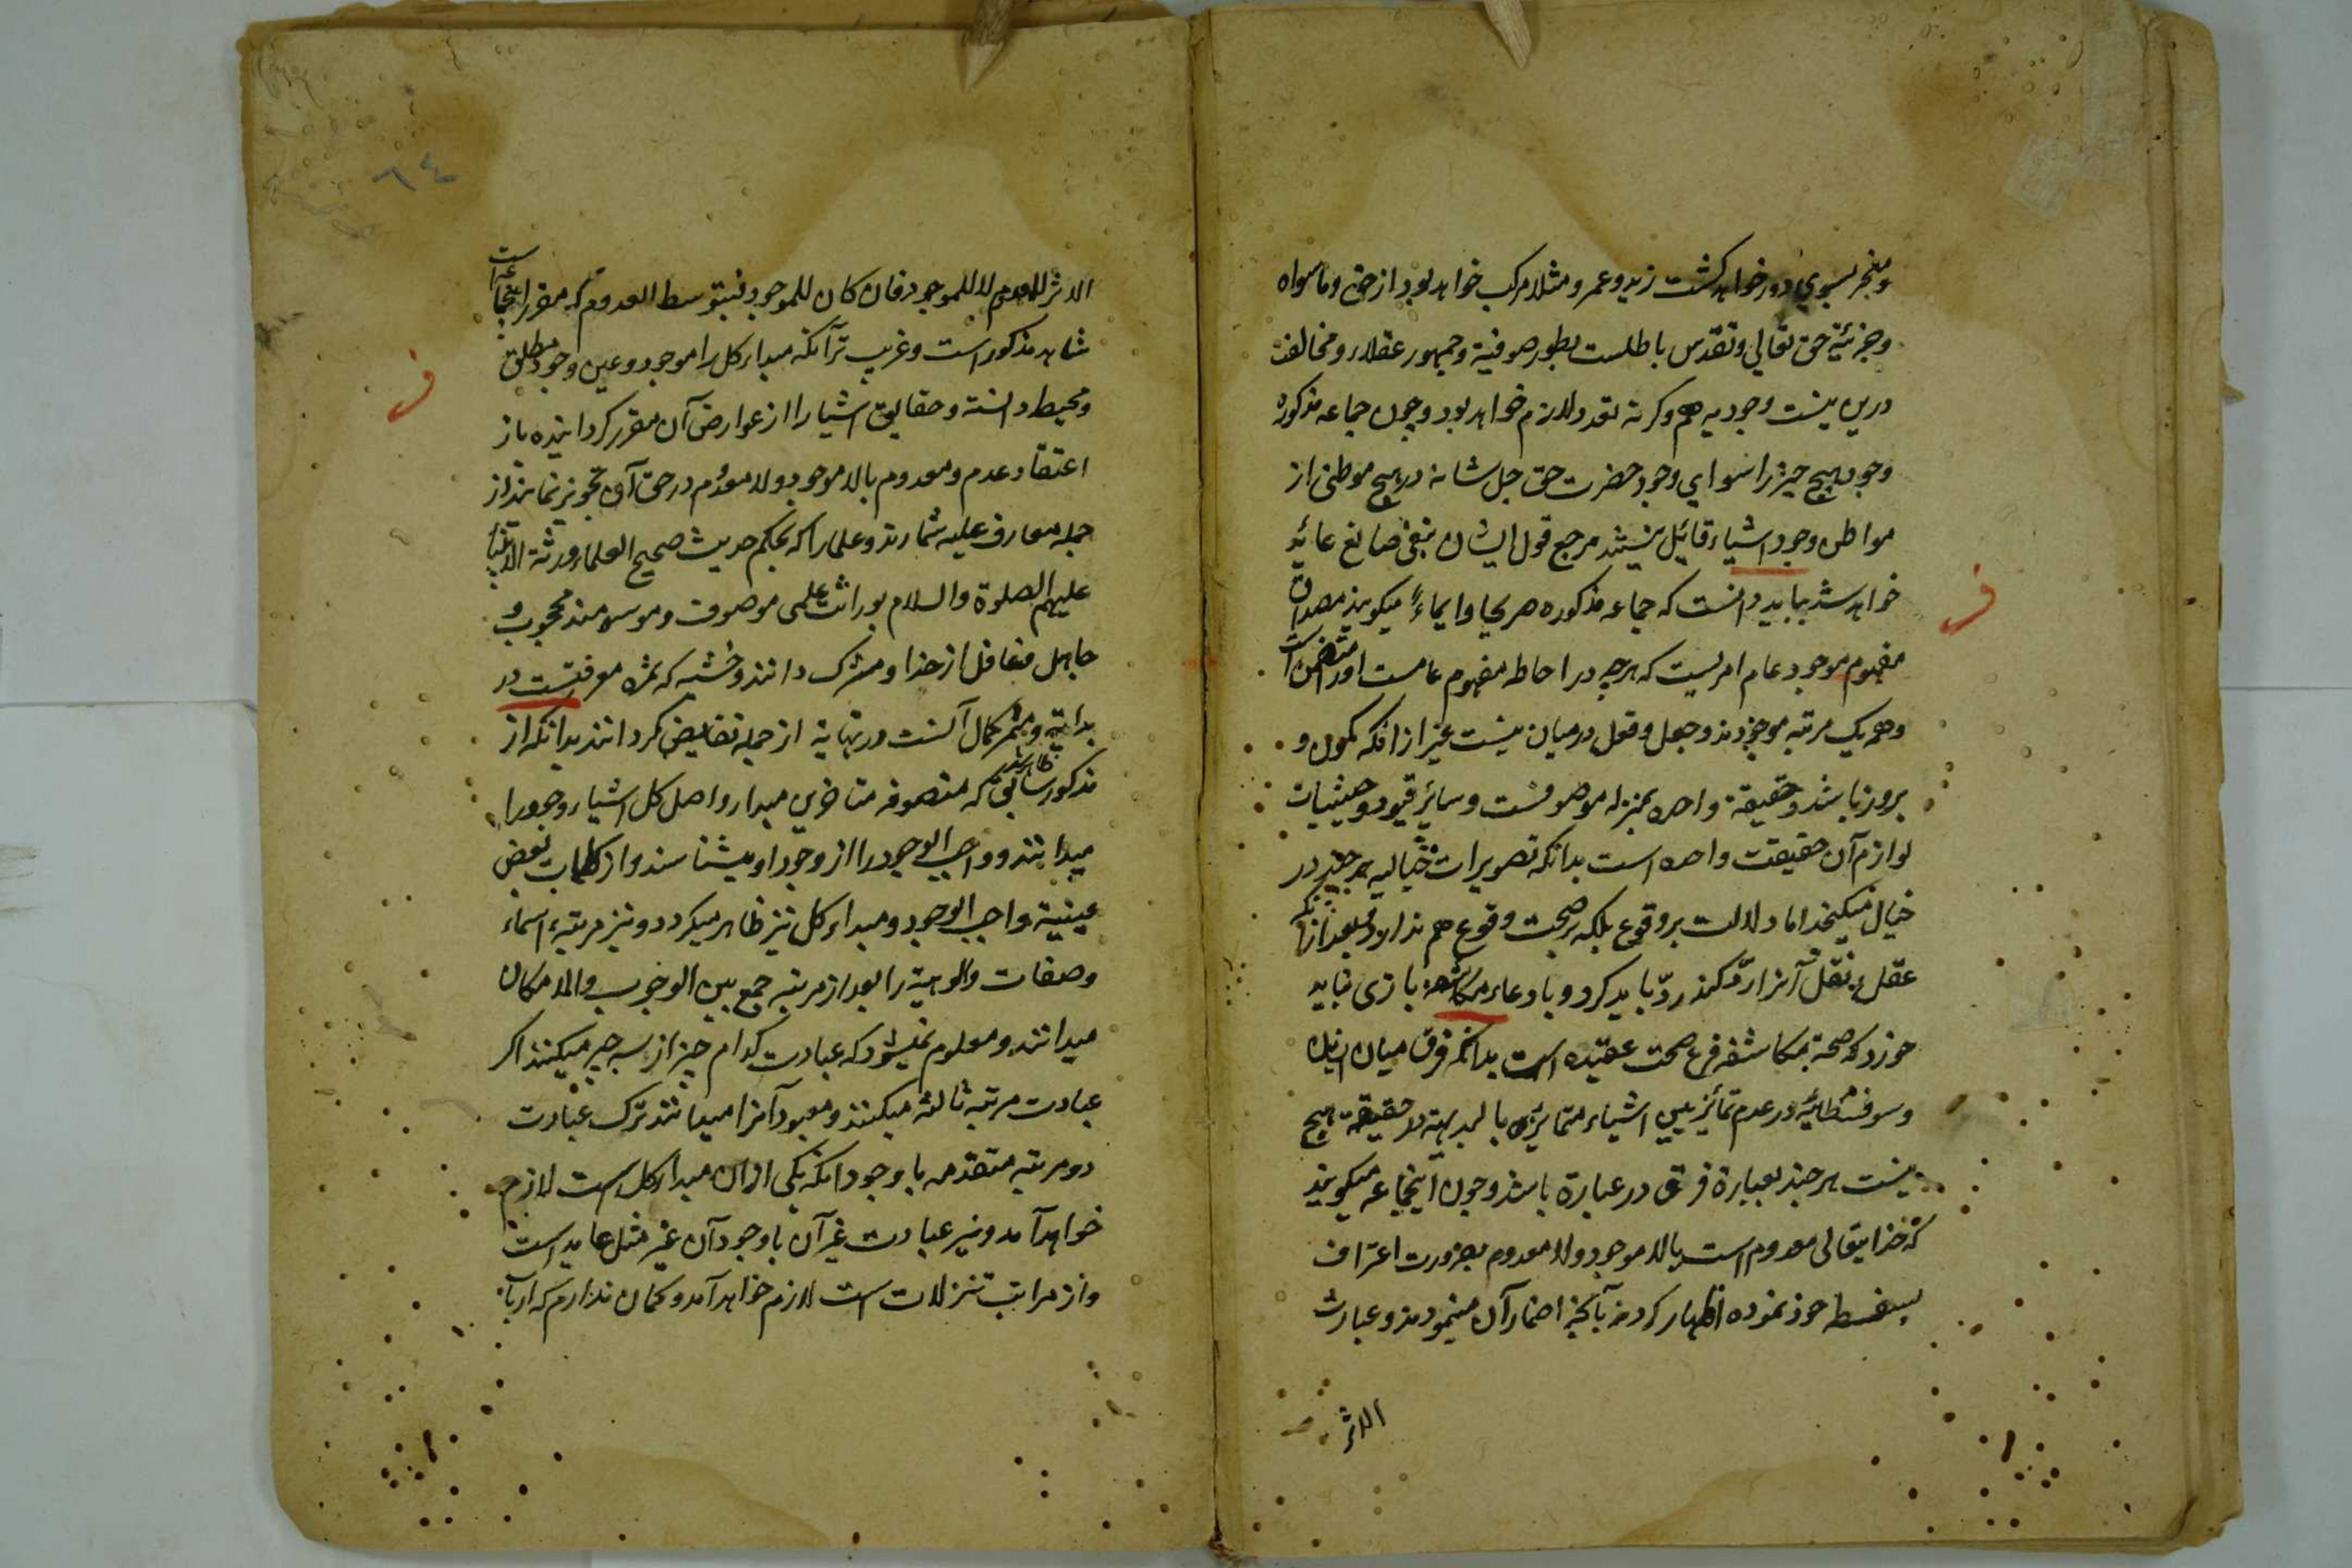 ومنجر بسوی دور خواهد کشت زید و عمرو مثلا مرکب خواهد بود از حق و ماسواه
وجزئیة حق تعالی و تقدس باطلست بطور صوفیة و جمهور عقلاء و مخالفت
درین نیست وجودیه هم وکرنه تعدد لازم خواهد بود و چون جماعه مذکوره
وجود هیچ چیز را سوای وجود حضرت حق جل شانه در هیچ موطنی از
مواطن وجود اشیاء قائیل نیستند مرجع قول ایشان بنفی صانع عائد
خواهد شد بباید دانست که جماعه مذکوره صریحا و ایماءً میکویند مصداق
مفهوم موجود عام امریست که هرچه در احاطه مفهوم عامست اورا متضمن است
وهمه یک مرتبه موجودند و جعل و فعل درمیان نیست غیر ازانکه کمون و
بروز باشد و حقیقة واحده بمنزله موصوفست و سائر قیود و حیثیات
لوازم آن حقیقت واحده است بدانکه تصویرات خیالیه هرچند در
خیال میکنجد اما دلالت بر وقوع بلکه بر صحت وقوع هم ندارد بعد ازانکه
عقل و نقل آنرا ردّ کند ردّ باید کرد و بادعاء مکاشفه بازی نباید
خورد که صحة مکاشفه فرع صحت عقیده است بدانکه فرق میان اینان
وسوفسطائیه در عدم تمائز بین اشیاء متمائزه بالبدیهة در حقیقة هیچ
نیست هرچند بعبارة فرق در عبارة باشد و چون اینجماعه میکویند
که خدایتعالی معدوم است بالا موجود ولا معدوم بضرورت اعتراف
بسفسطه خود نموده اظهار کردند آنچه اضمار آن مینمودند و عبارت
الاثر
٦٤
الاثر للمعدوم لا للموجود فان کان للموجود فبتوسط المعدوم که مقرر اینجماعه است
شاهد مذکور است و غریب تر آنکه مبداء کل را موجود و عین وجود مطلق
ومحیط دانسته و حقایق اشیا را از عوارض آن مقرر کردانیده باز
اعتقاد عدم و معدوم بالا موجود ولا معدوم در حق آن تجویز نمایند از
جمله معارف علیه شمارند و علما را که بحکم حدیث صحیح العلماء ورثة الانبیا
علیهم الصلوة والسلام بوراثت علمی موصوف و موسومند محجوب و
جاهل و غافل از خدا و مشرک دانند و خشیه که ثمره معرفتست در
بدایة و مثمر کمال آنست در نهایة از جمله نقایض کردانند بدانکه از
مذکور سابق ظاهر شد که متصوفه متاخرین مبداء و اصل کل اشیاء وجود را
میدانند و واجب الوجود را از وجود او میشناسند و از کلمات بعض
عینیة واجب الوجود و مبداء کل نیز ظاهر میکردد و نیز مرتبهء اسماء
وصفات والوهیة را بعد از مرتبه جمع بین الوجوب والامکان
میدانند و معلوم نمیشود که عبادت کدام چیز از سه چیز میکنند اکر
عبادت مرتبه ثالثه میکنند و معبود آنرا میدانند ترک عبادت
دو مرتبه متقدمه با وجود انکه یکی ازان مبداء کل است لازم
خواهد آمد و نیز عبادت غیر آن با وجود آن غیر مثل عابد است
واز مراتب تنزلات است لازم خواهد آمد و کمان ندارم که ارباب